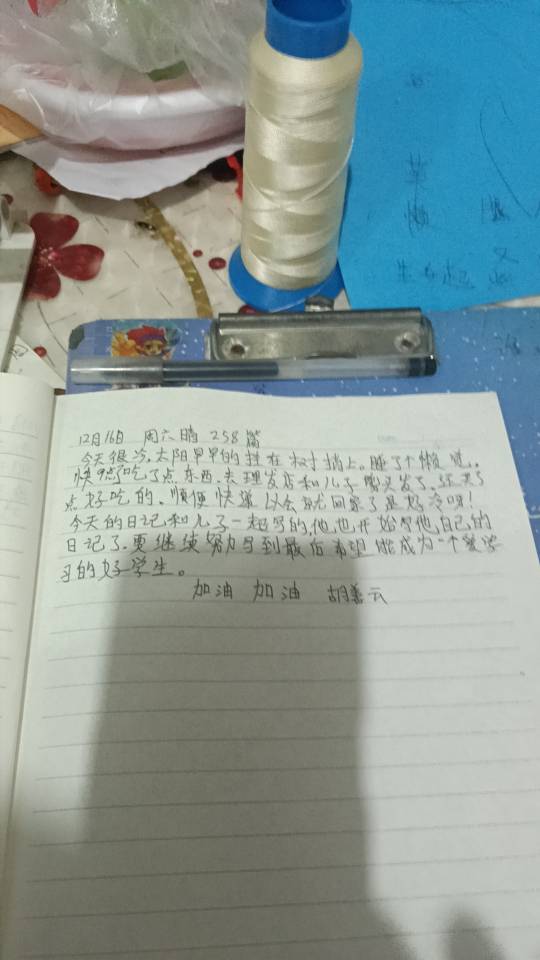 菜
懒
生
12月16日 周六 晴 258篇
今天很冷,太阳早早的挂在树梢上。睡了个懒觉。
快9点了吃了点东西、去理发店和儿子剪头发了、还买了
点好吃的、顺便快递 以会就回家了是好冷呀!
今天的日记和儿子一起写的他也开始写他自己的
日记了、要继续努力写到最后希望能成为一个爱学
习的好学生。
加油 加油 胡善云